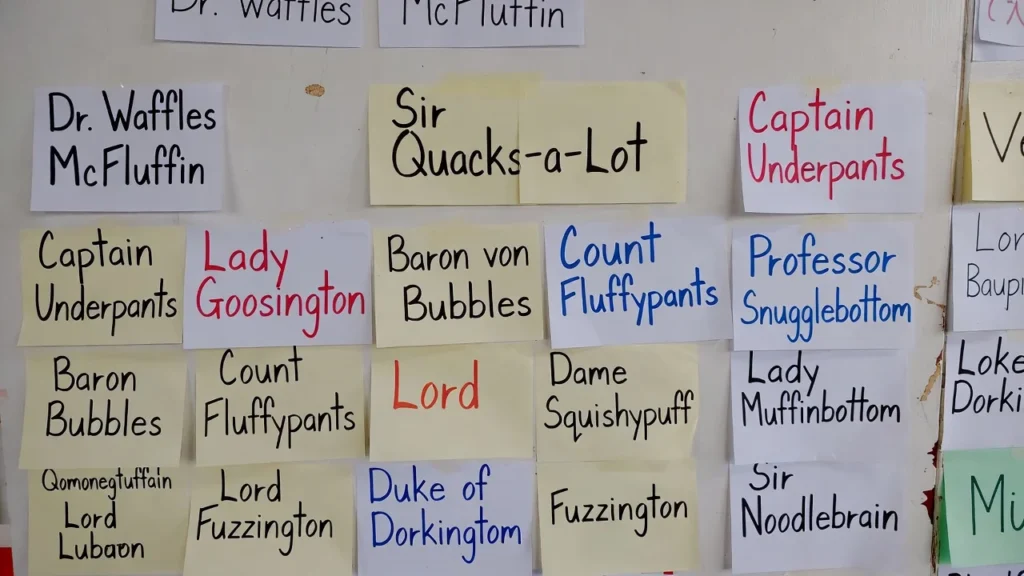 Dr. Waffles
McFluffin
Dr. Waffles
McFluffin
Sir
Quacks-a-Lot
Captain
Underpants
Captain
Underpants
Lady
Goosington
Baron von
Bubbles
Count
Fluffypants
Professor
Snugglebottom
Baron
Bubbles
Count
Fluffypants
Lord
Dame
Squishypuff
Lady
Muffinbottom
Qomonegtuffain
Lord
Lubaon
Lord
Fuzzington
Duke of
Dorkingtom
Fuzzington
Sir
Noodlebrain